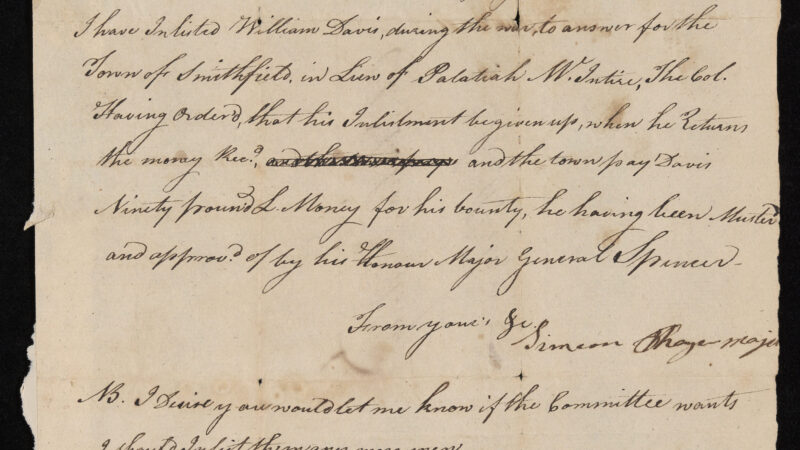 I have Inlisted William Davis, during the war, to answer for the
Town of Smithfield, in Lieu of Palatiah Mc. Intire, The Col.
Having Order'd, that his Inlistment be given up, when he Returns
the money Recd., and the town pay Davis
Ninety pound L. Money for his bounty, he having been Muster'd
and approv'd of by his Honour Major General Spencer
From yours &c.
Simeon Thayer major
NB. I Desire you would let me know if the Committee wants
I should Inlist them any more men